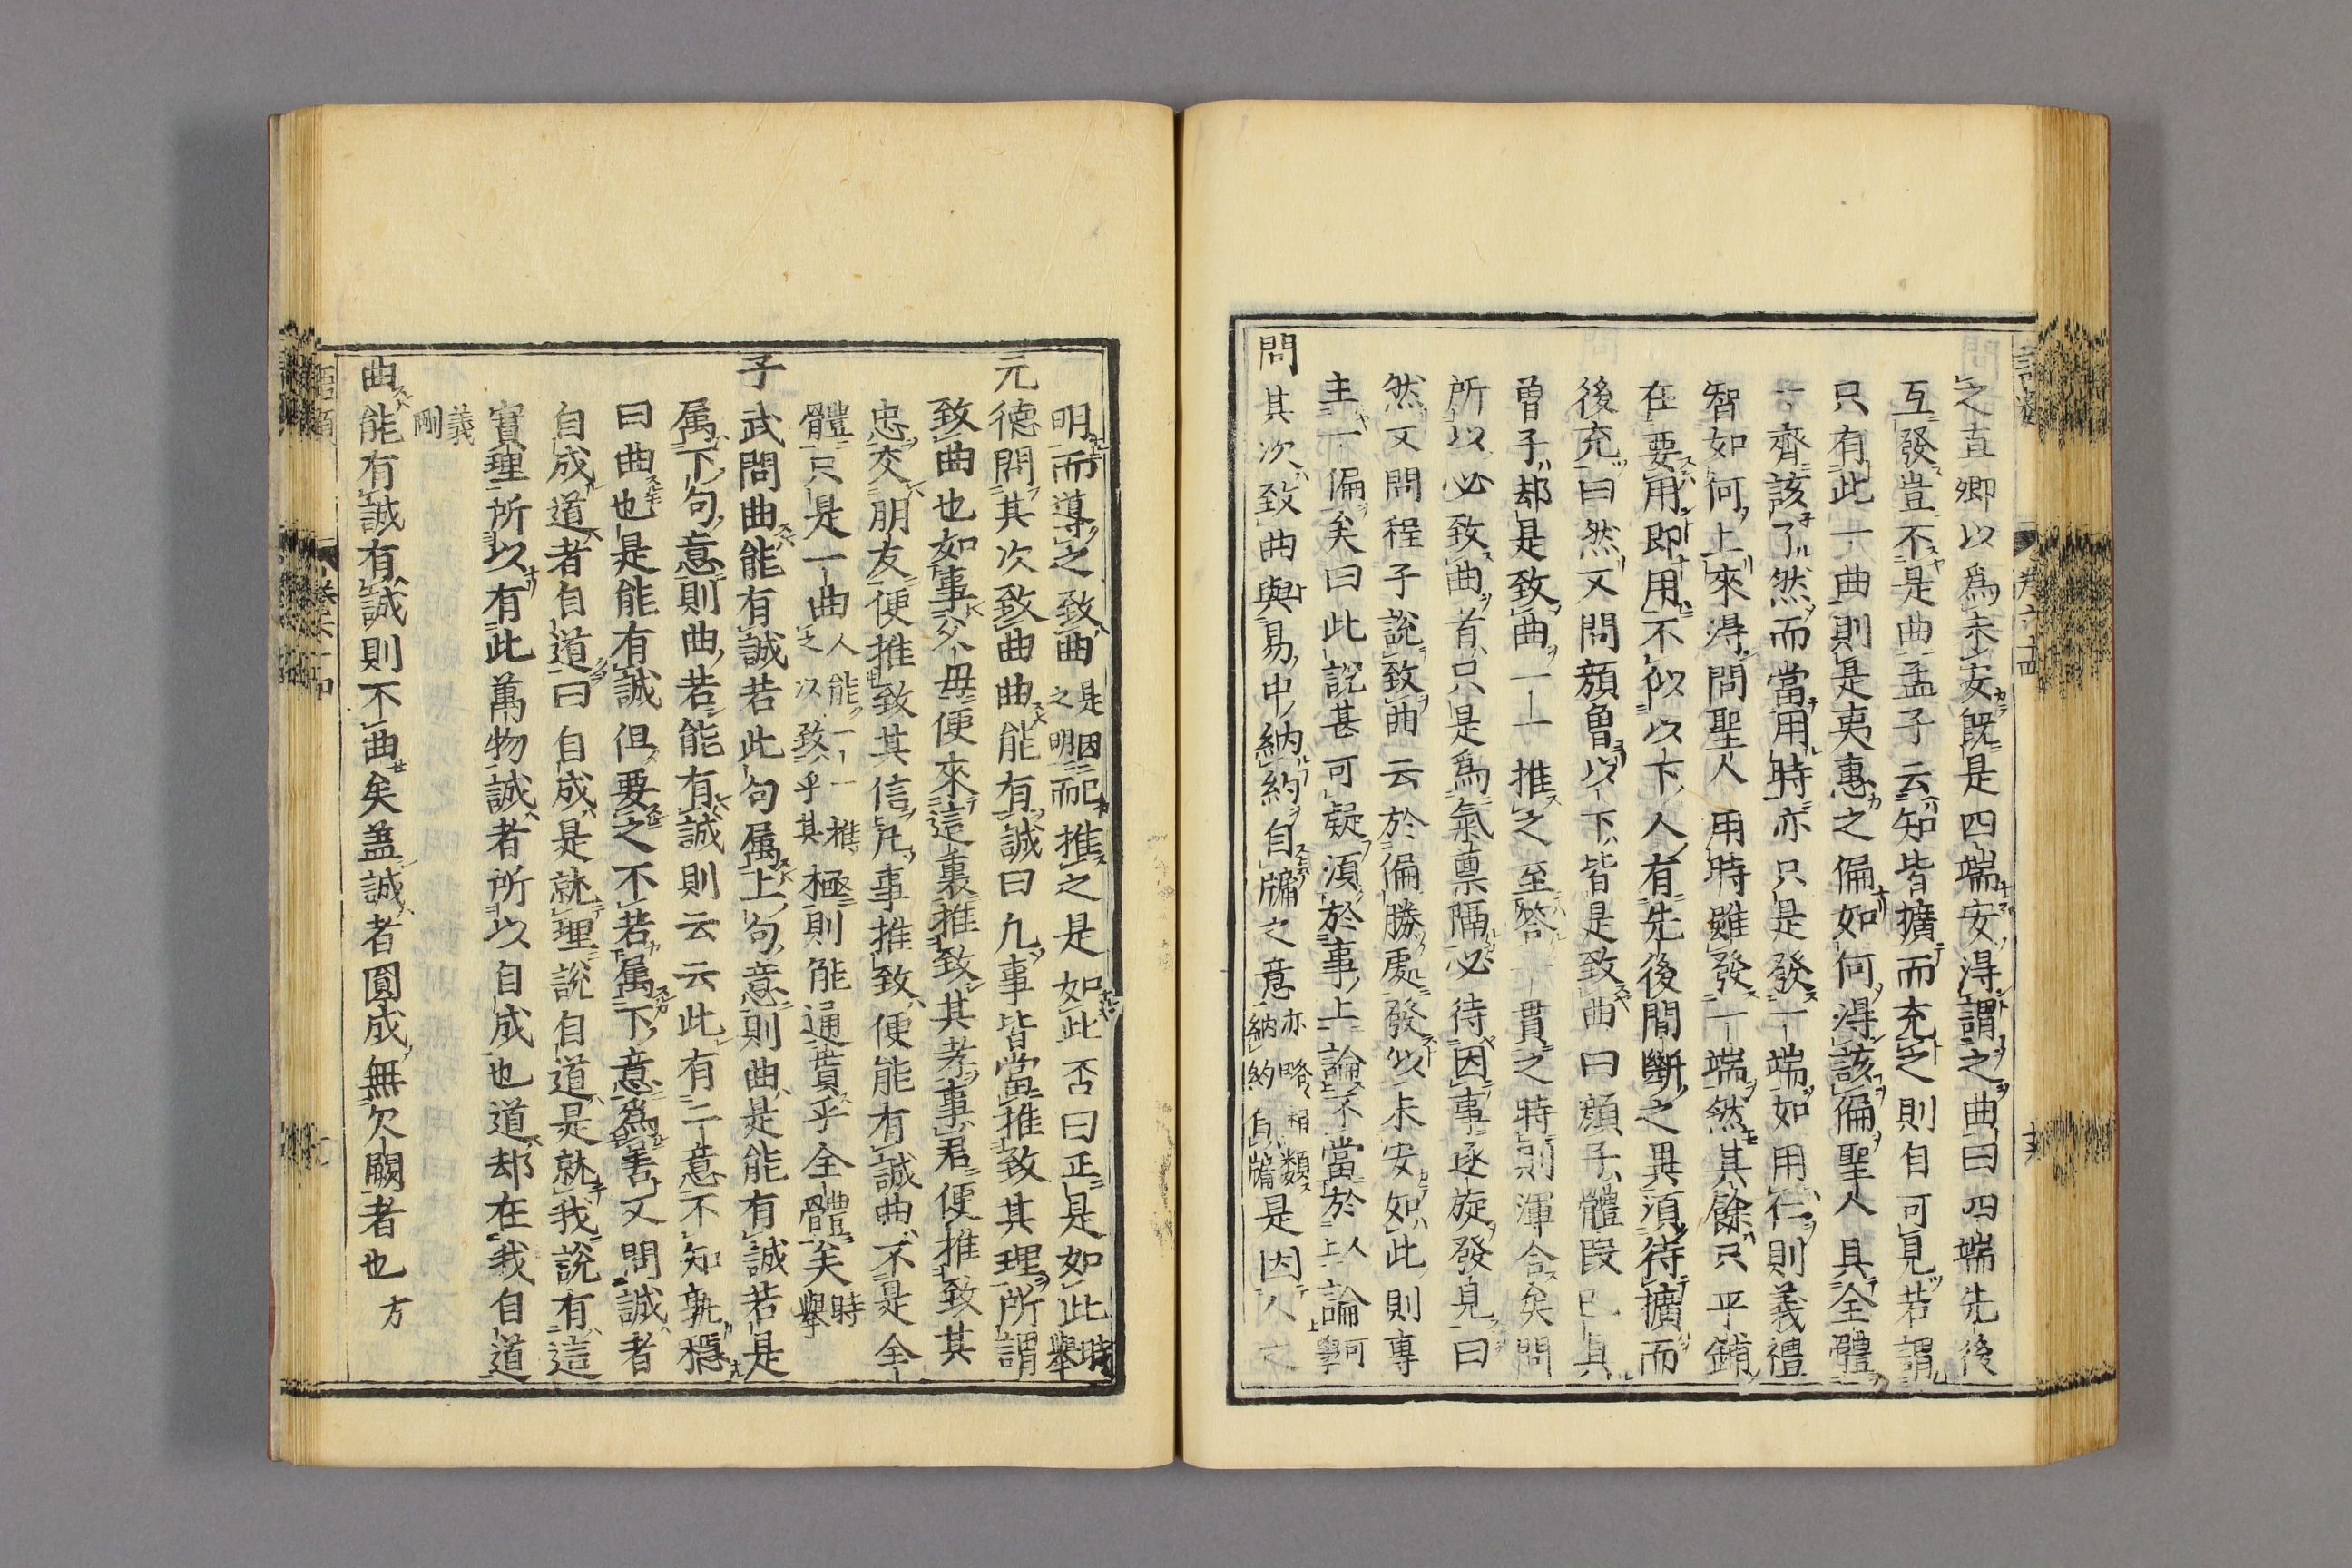 之直卿以爲未安既是四端安得謂之曲曰四端先後
互發豈不是曲孟子云知皆擴而充之則自可見若謂
只有此一曲則是夷惠之偏如何得該偏聖人具全體
一齊該了然而當用時亦只是發一端如用仁則義禮
智如何上來得問聖人用時雖發一端然其餘只平鋪
在要用即用不似以下人有先後間斷之異須待擴而
後充曰然又問顔魯以下皆是致曲曰顔子體段已具
曽子却是致曲一一推之至答一貫之時則渾合矣問
所以必致曲者只是爲氣禀隔必待因事逐旋發見曰
然又問程子說致曲云於偏勝處發似未安如此則專
主一偏矣曰此說甚可疑須於事上論不當於人上論 可學
問其次致曲與易中納約自牖之意亦略相類納約自牖是因人之
明而導之致曲是因己之明而推之是如此否曰正是如此 時舉
元德問其次致曲曲能有誠曰凡事皆當推致其理所謂
致曲也如事父母便來這裏推致其孝事君便推致其
忠交朋友便推致其信凡事推致便能有誠曲不是全
體只是一曲人能一一推之以致乎其極則能通貫乎全體矣 時舉
子武問曲能有誠若此句属上句意則曲是能有誠若是
属下句意則曲若能有誠則云云此有二意不知孰穩
曰曲也是能有誠但要之不若属下意爲善又問誠者
自成道者自道曰自成是就理說自道是就我說有這
實理所以有此萬物誠者所以自成也道却在我自道
義剛
曲能有誠有誠則不曲矣蓋誠者圓成無欠闕者也 方